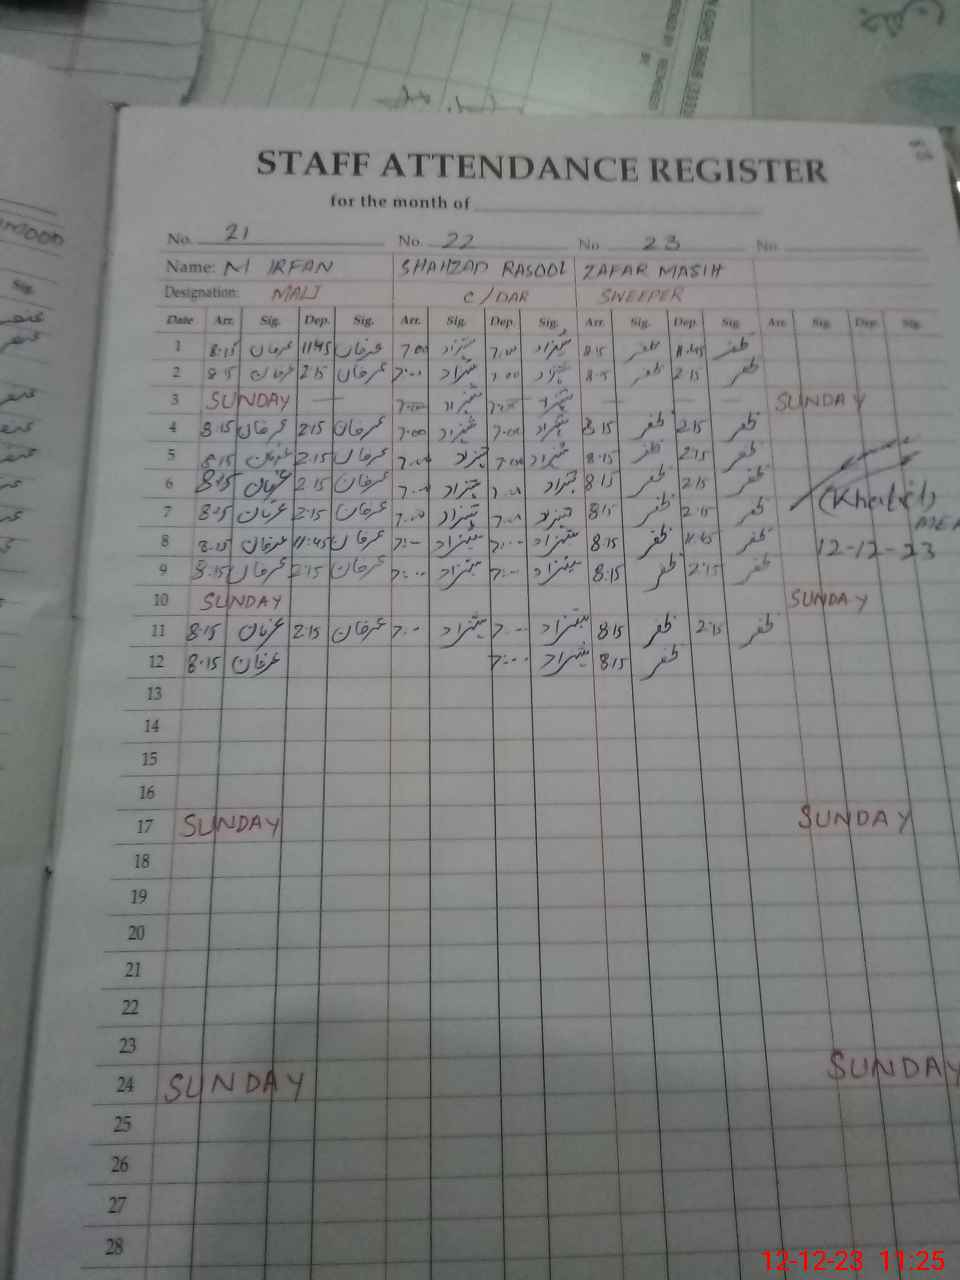 STAFF ATTENDANCE REGISTER
for the month of
No. 21 No. 22 No. 23 No.
Name: M IRFAN SHAHZAD RASOOL ZAFAR MASIH
Designation: MALI C/DAR SWEEPER
Date Arr. Sig. Dep. Sig. Arr. Sig. Dep. Sig. Arr. Sig. Dep. Sig. Arr. Sig. Dep. Sig.
1 8:15 عرفان 11:45 عرفان 7:00 شہزاد 7:00 شہزاد 8:15 ظفر 11:45 ظفر
2 8:15 عرفان 2:15 عرفان 7:00 شہزاد 7:00 شہزاد 8:15 ظفر 2:15 ظفر
3 SUNDAY 7:00 شہزاد 7:00 شہزاد SUNDAY
4 8:15 عرفان 2:15 عرفان 7:00 شہزاد 7:00 شہزاد 8:15 ظفر 2:15 ظفر
5 8:15 عرفان 2:15 عرفان 7:00 شہزاد 7:00 شہزاد 8:15 ظفر 2:15 ظفر
6 8:15 عرفان 2:15 عرفان 7:00 شہزاد 7:00 شہزاد 8:15 ظفر 2:15 ظفر
(Khalil)
7 8:15 عرفان 2:15 عرفان 7:00 شہزاد 7:00 شہزاد 8:15 ظفر 2:15 ظفر
8 8:15 عرفان 11:45 عرفان 7:00 شہزاد 7:00 شہزاد 8:15 ظفر 11:45 ظفر 12-12-23
9 8:15 عرفان 2:15 عرفان 7:00 شہزاد 7:00 شہزاد 8:15 ظفر 2:15 ظفر
10 SUNDAY SUNDAY
11 8:15 عرفان 2:15 عرفان 7:00 شہزاد 7:00 شہزاد 8:15 ظفر 2:15 ظفر
12 8:15 عرفان 7:00 شہزاد 8:15 ظفر
13
14
15
16
17 SUNDAY SUNDAY
18
19
20
21
22
23
24 SUNDAY SUNDAY
25
26
27
28
12-12-23 11:25